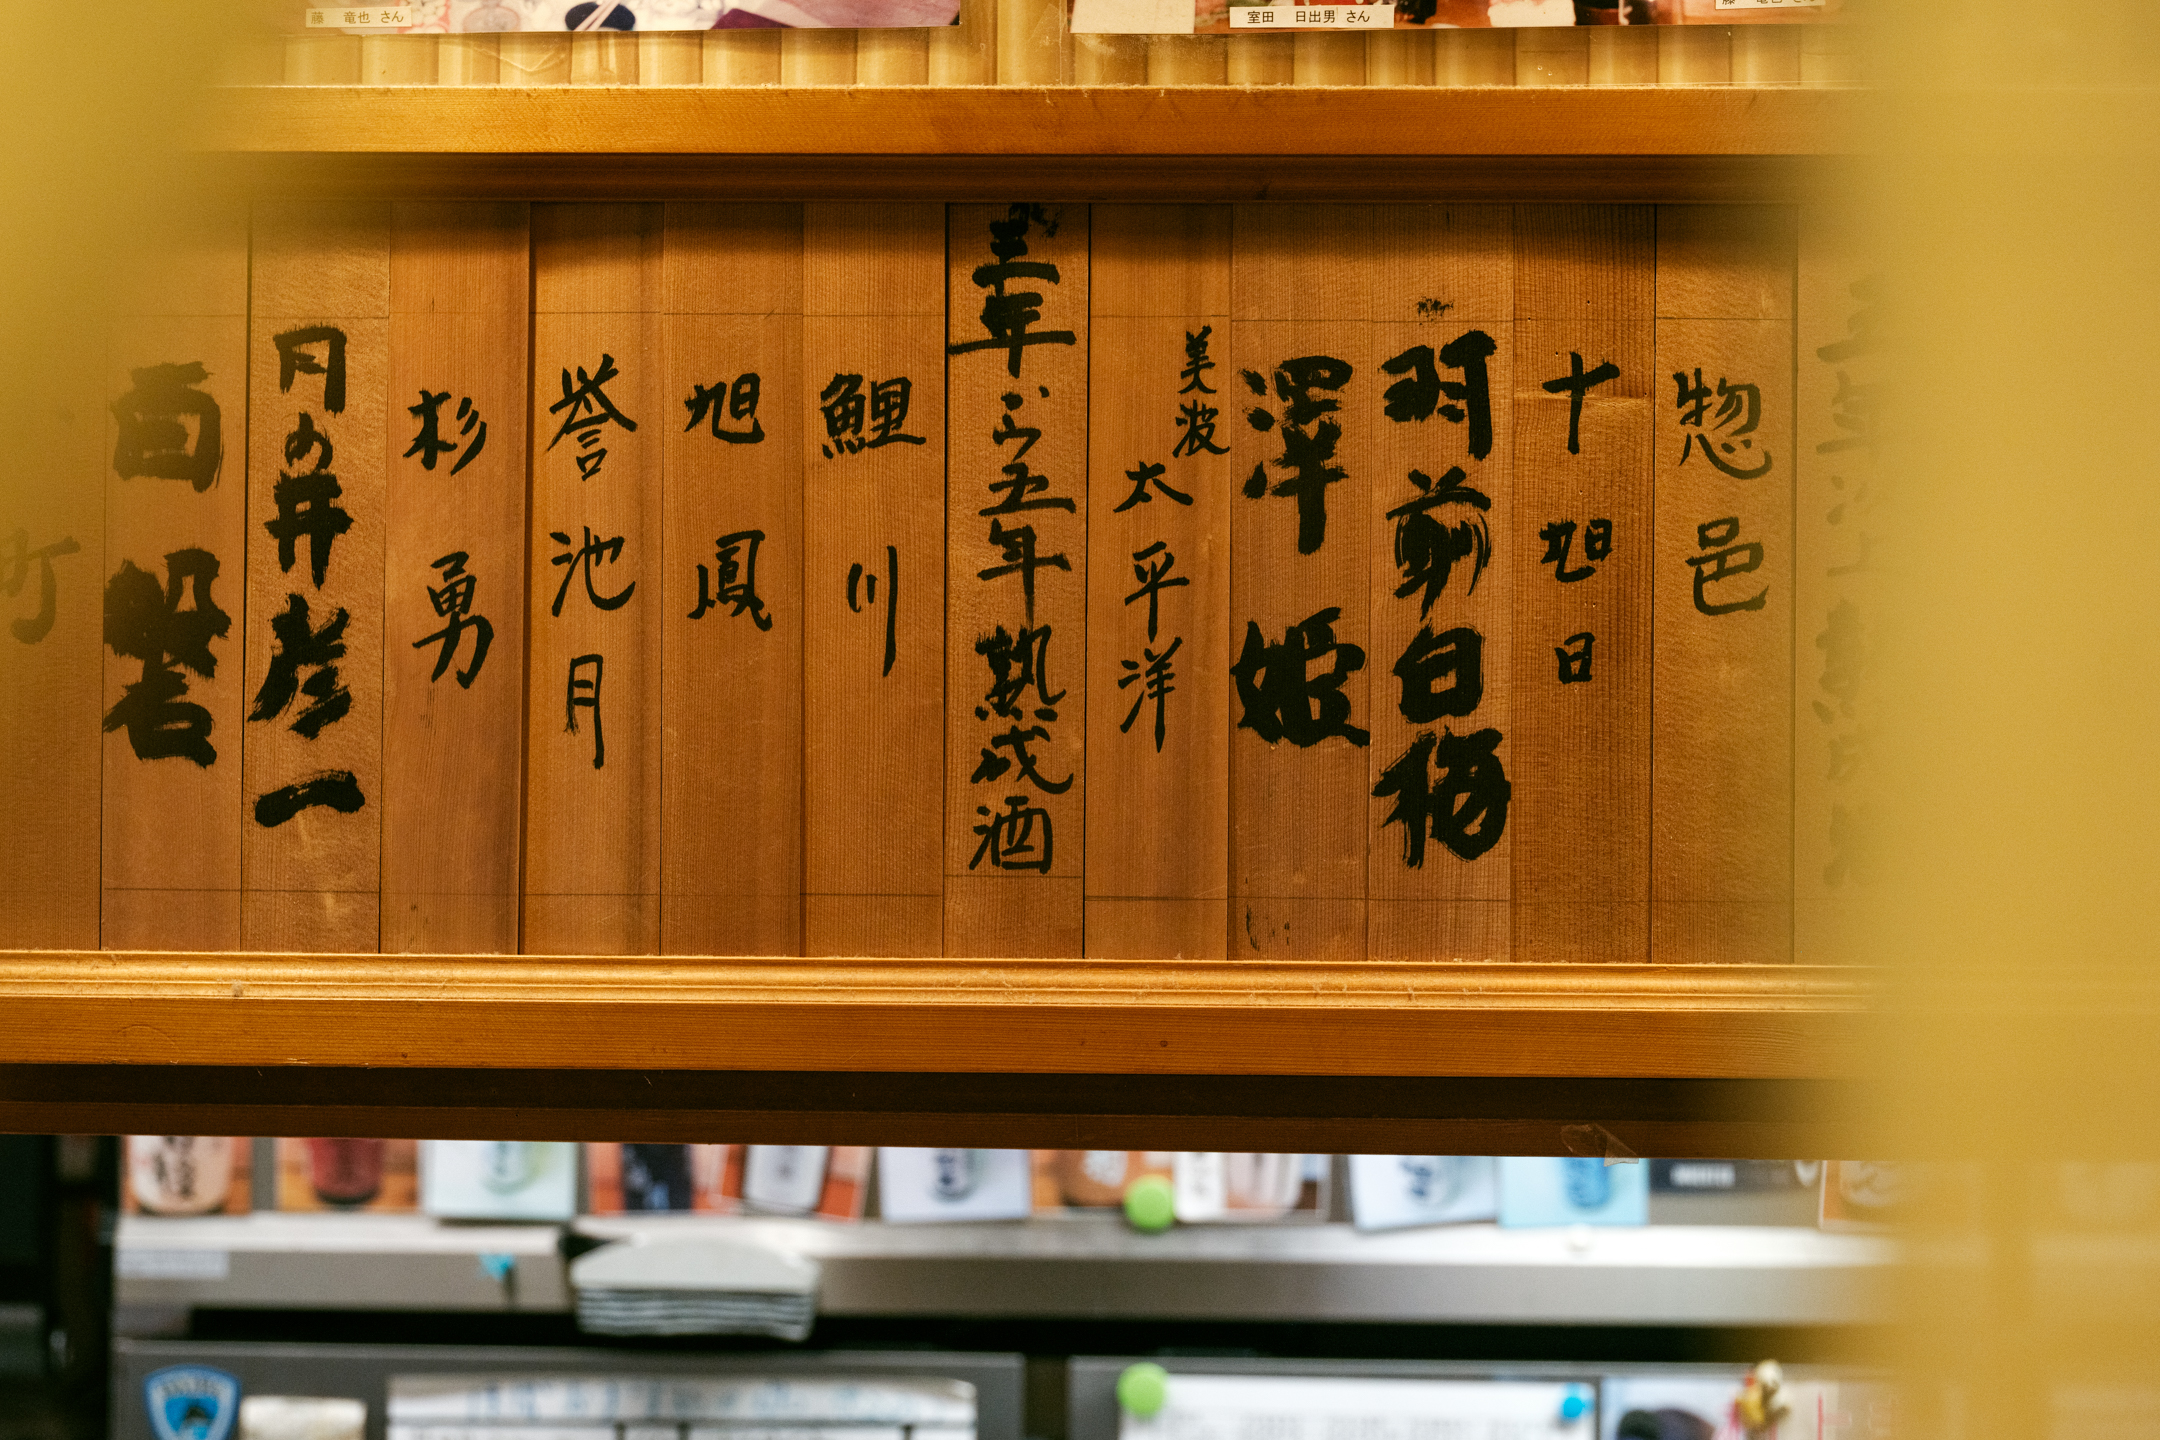 藤 竜也 さん
室田 日出男 さん
惣邑
十旭日
羽前白梅
澤姫
美波
太平洋
三年から五年熟成酒
鯉川
旭鳳
誉池月
杉勇
月の井彦一
百磐
町